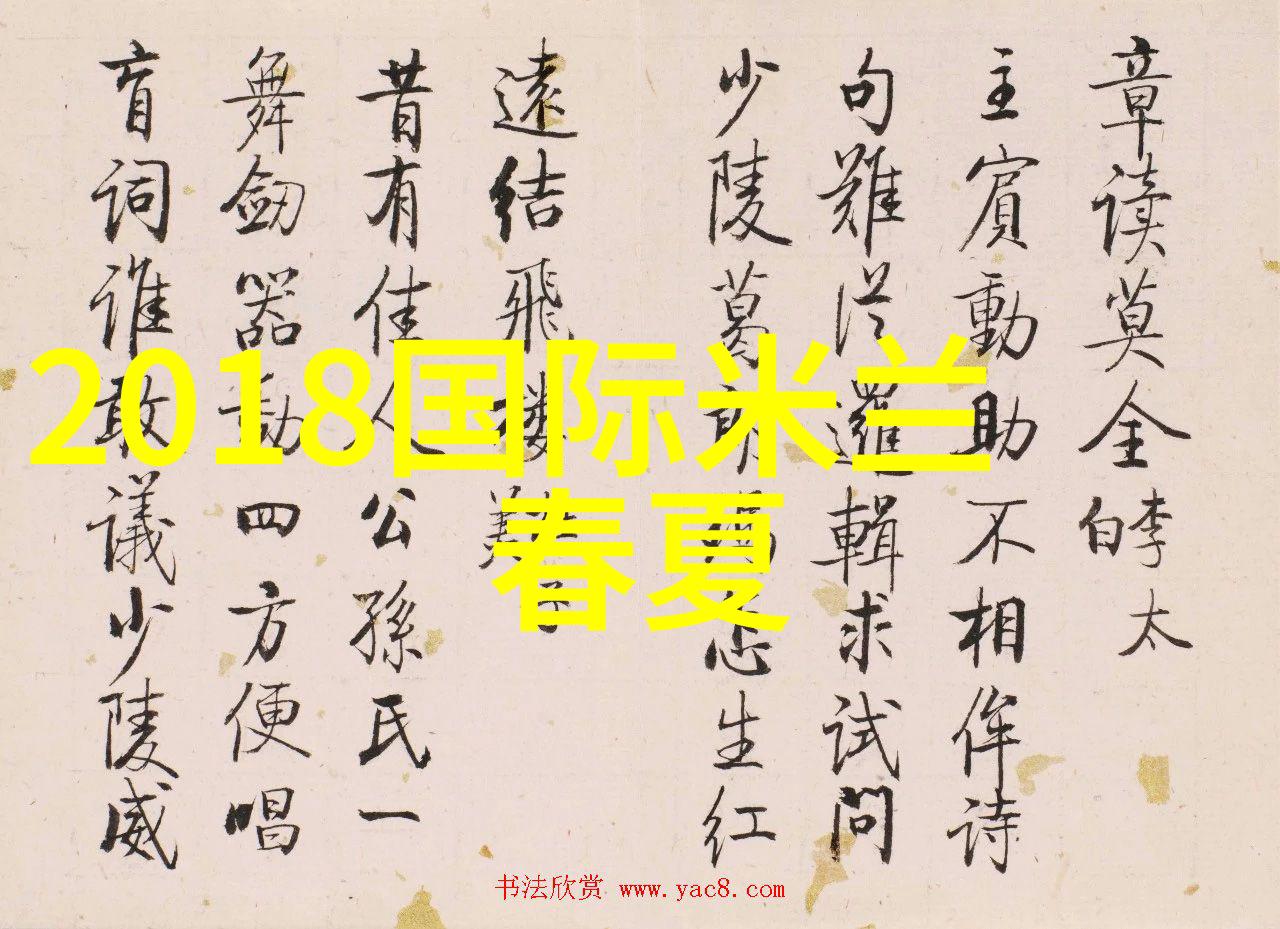 章读莫全李太白
主賓動助不相侔诗
句難從邏輯求试問
少陵葛郎生红
遠結飛楼
昔有佳人公孫氏一
舞劒器動四方便唱
盲词谁敢議少陵威
2018国际米兰
春夏
书法欣赏 www.yac8.com